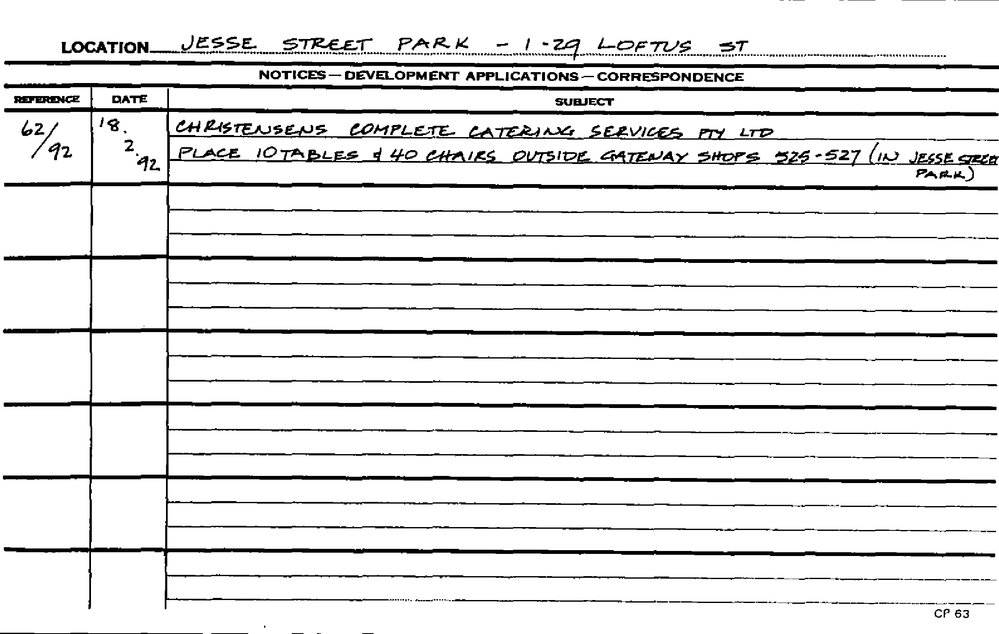 LOCATION JESSE STREET PARK - 1-29 LOFTUS ST
NOTICES—DEVELOPMENT APPLICATIONS—CORRESPONDENCE
REFERENCE DATE SUBJECT
62/92 18.2.92 CHRISTENSENS COMPLETE CATERING SERVICES PTY LTD
PLACE 10 TABLES & 40 CHAIRS OUTSIDE GATEWAY SHOPS 525-527 (IN JESSE STREET
PARK)
CP 63